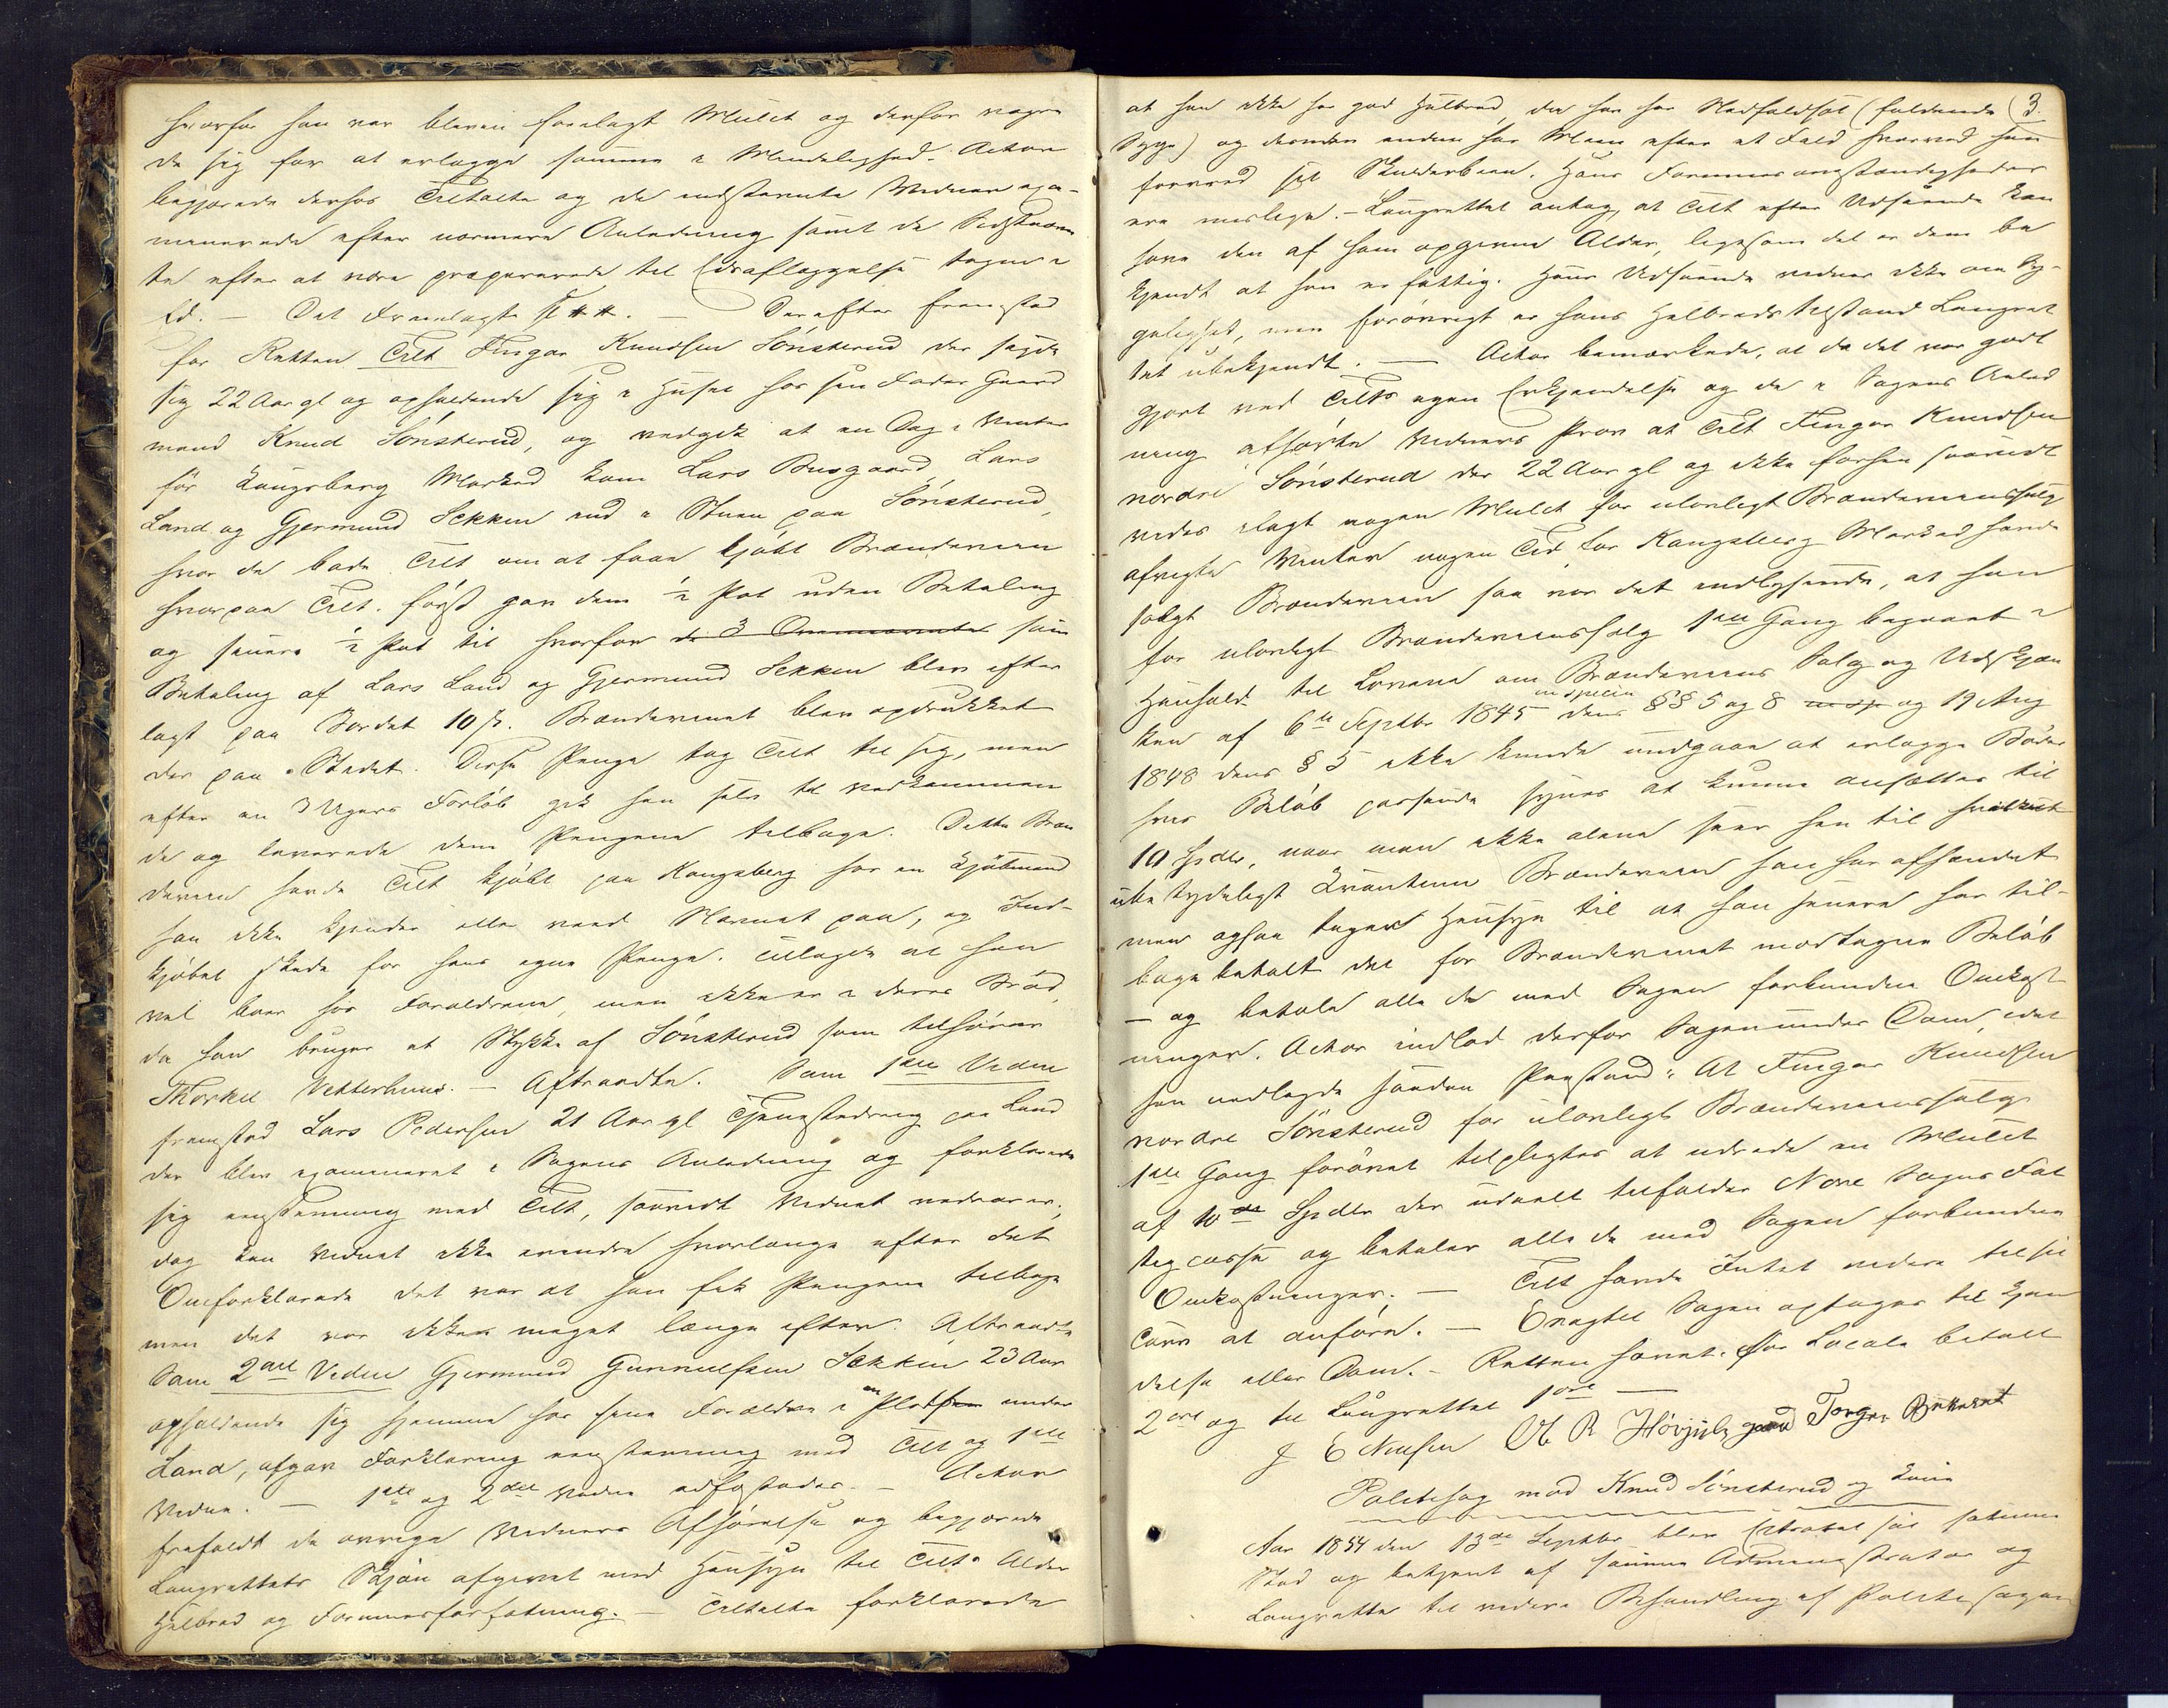 hvorfor han var bleven forelagt Mulct og derfor vægre
de sig for at erlægge samme i Mindelighed. Actor
begjærede derhos Tiltalte og de indstevnte Vidner exa-
minerede efter nærmere Anledning samt de Sidstnævn
te efter at være præparerede til Edsaflæggelse tagne i
Ed. — Det Fremlagte . — Derefter fremstod
for Retten Tilt Fingar Knudsen Sönsterud der sagde
sig 22 Aar gl og opholdende sig i Huset hos sin Fader Gaard
mand Knud Sönsterud, og vedgik at en Dag i Vinter
för Kongsberg Marked kom Lars Busgaard, Lars
Land og Gjermund Sekken ind i Stuen paa Sönsterud,
hvor de bade Tilt om at faae kjöbt Brændeviin
hvorpaa Tilt. först gav dem ½ Pot uden Betaling
og senere ½ Pot til hvorfor de 3 som
Betaling af Lars Land og Gjermund Sekken blev efter
lagt paa Bordet 10 ß. Brændevinet blev opdrukket
der paa Stedet. Disse Penge tog Tilt til sig, men
efter en 3 Ugers Forlöb gik han selv til vedkommen
de og leverede dem Pengene tilbage. Dette Bræn
deviin havde Tilt kjöbt paa Kongsberg hos en Kjöbmand
han ikke kjender eller veed Navnet paa, og Ind-
kjöbet skede for hans egne Penge. Tillagde at han
vel boer hos Forældrene, men ikke er i deres Bröd,
da han bruger et Stykke af Sönsterud som tilhörer
Thorkel Vetterhuus. — Aftraadte. Som 1ste Vidne
fremstod Lars Pedersen 21 Aar gl Tjenestedreng paa Land
der blev examineret i Sagens Anledning og forklarede
sig eenstemmig med Tilt, saavidt Vidnet vedrörer,
dog kan Vidnet ikke erindre hvorlænge efter det
Omforklarede det var at han fik Pengene tilbage
men det var ikke meget længe efter. Aftraadte
Som 2det Vidne Gjermund Gunnulfsen Sekken 23 Aar
opholdende sig hjemme hos sine Forældre i en Plads under
Land, afgav Forklaring eenstemmig med Tilt og 1ste
Vidne. — 1ste og 2det Vidne edfæstedes. — Actor
frafaldt de övrige Vidners Afhörelse og begjærede
Laugrettets Skjön afgivet med Hensyn til Tilts Alder
Helbred og Formuesforfatning. — Tiltalte forklarede
at han ikke har god Helbred, da han har Nedfaldsot (faldende 3.
Syge) og desuden endnu har Meen efter et Fald hvorved han
forvred sit Skulderbeen. Hans Formuesomstændigheder
ere maadelige. — Laugrettet antog, at Tilt efter Udseende kan
have den af ham opgivne Alder, ligesom det er dem be
kjendt at han er fattig. Hans Udseende vidner ikke om Sy-
gelighed, men forövrigt er hans Helbredstilstand Laugret
tet ubekjendt. — Actor bemærkede, at da det var godt
gjort ved Tilts egen Erkjendelse og de i Sagens Anled
ning afhörte Vidners Prov at Tilt Fingar Knudsen
nordre Sönsterud der 22 Aar gl og ikke forhen saavidt
vides ilagt nogen Mulct for ulovligt Brændeviinssalg
afvigte Vinter nogen Tid för Kongsberg Marked havde
solgt Brændeviin saa var det indlysende, at han
for ulovligt Brændeviinssalg 1ste Gang begaaet i
Henhold til Lovene om Brændeviins Salg og Udskjæn
ken af 6te Septbr 1845 dens in specie §§ 5 og 8 og 19 Aug
1848 dens § 5 ikke kunde undgaae at erlægge Böder
hvis Belöb passende synes at kunne ansættes til
10 Spdlr, naar man ikke alene seer hen til hvilket
ubetydeligt Kvantum Brændeviin han har afhændet
men ogsaa tager Hensyn til at han senere har til-
bagebetalt det for Brændevinet modtagne Belöb
— og betale alle de med Sagen forbundne Omkost
ninger. Actor indlod derfor Sagen under Dom, idet
han nedlagde saadan Paastand: At Fingar Knudsen
nordre Sönsterud for ulovligt Brændeviinssalg
1ste Gang forövet tilpligtes at udrede en Mulct
af 10 Spdlr der udeelt tilfalder Nore Sogns Fat
tigcasse og betaler alle de med Sagen forbundne
Omkostninger. — Tilt havde Intet videre til sit
Tarv at anföre. — Eragtet Sagen optages til Kjen
delse eller Dom. — Retten hævet. For Locale betalt
2 ort og til Laugrettet 1 ort —
J E Nielsen Ole R Hövjulsgaard Torger
Politisag mod Knud Sönsterud og Kone
Aar 1854 den 13de Septbr blev Extraret sat samme
Sted og betjent af samme Administrator og
Laugrette til videre Behandling af Politisagen